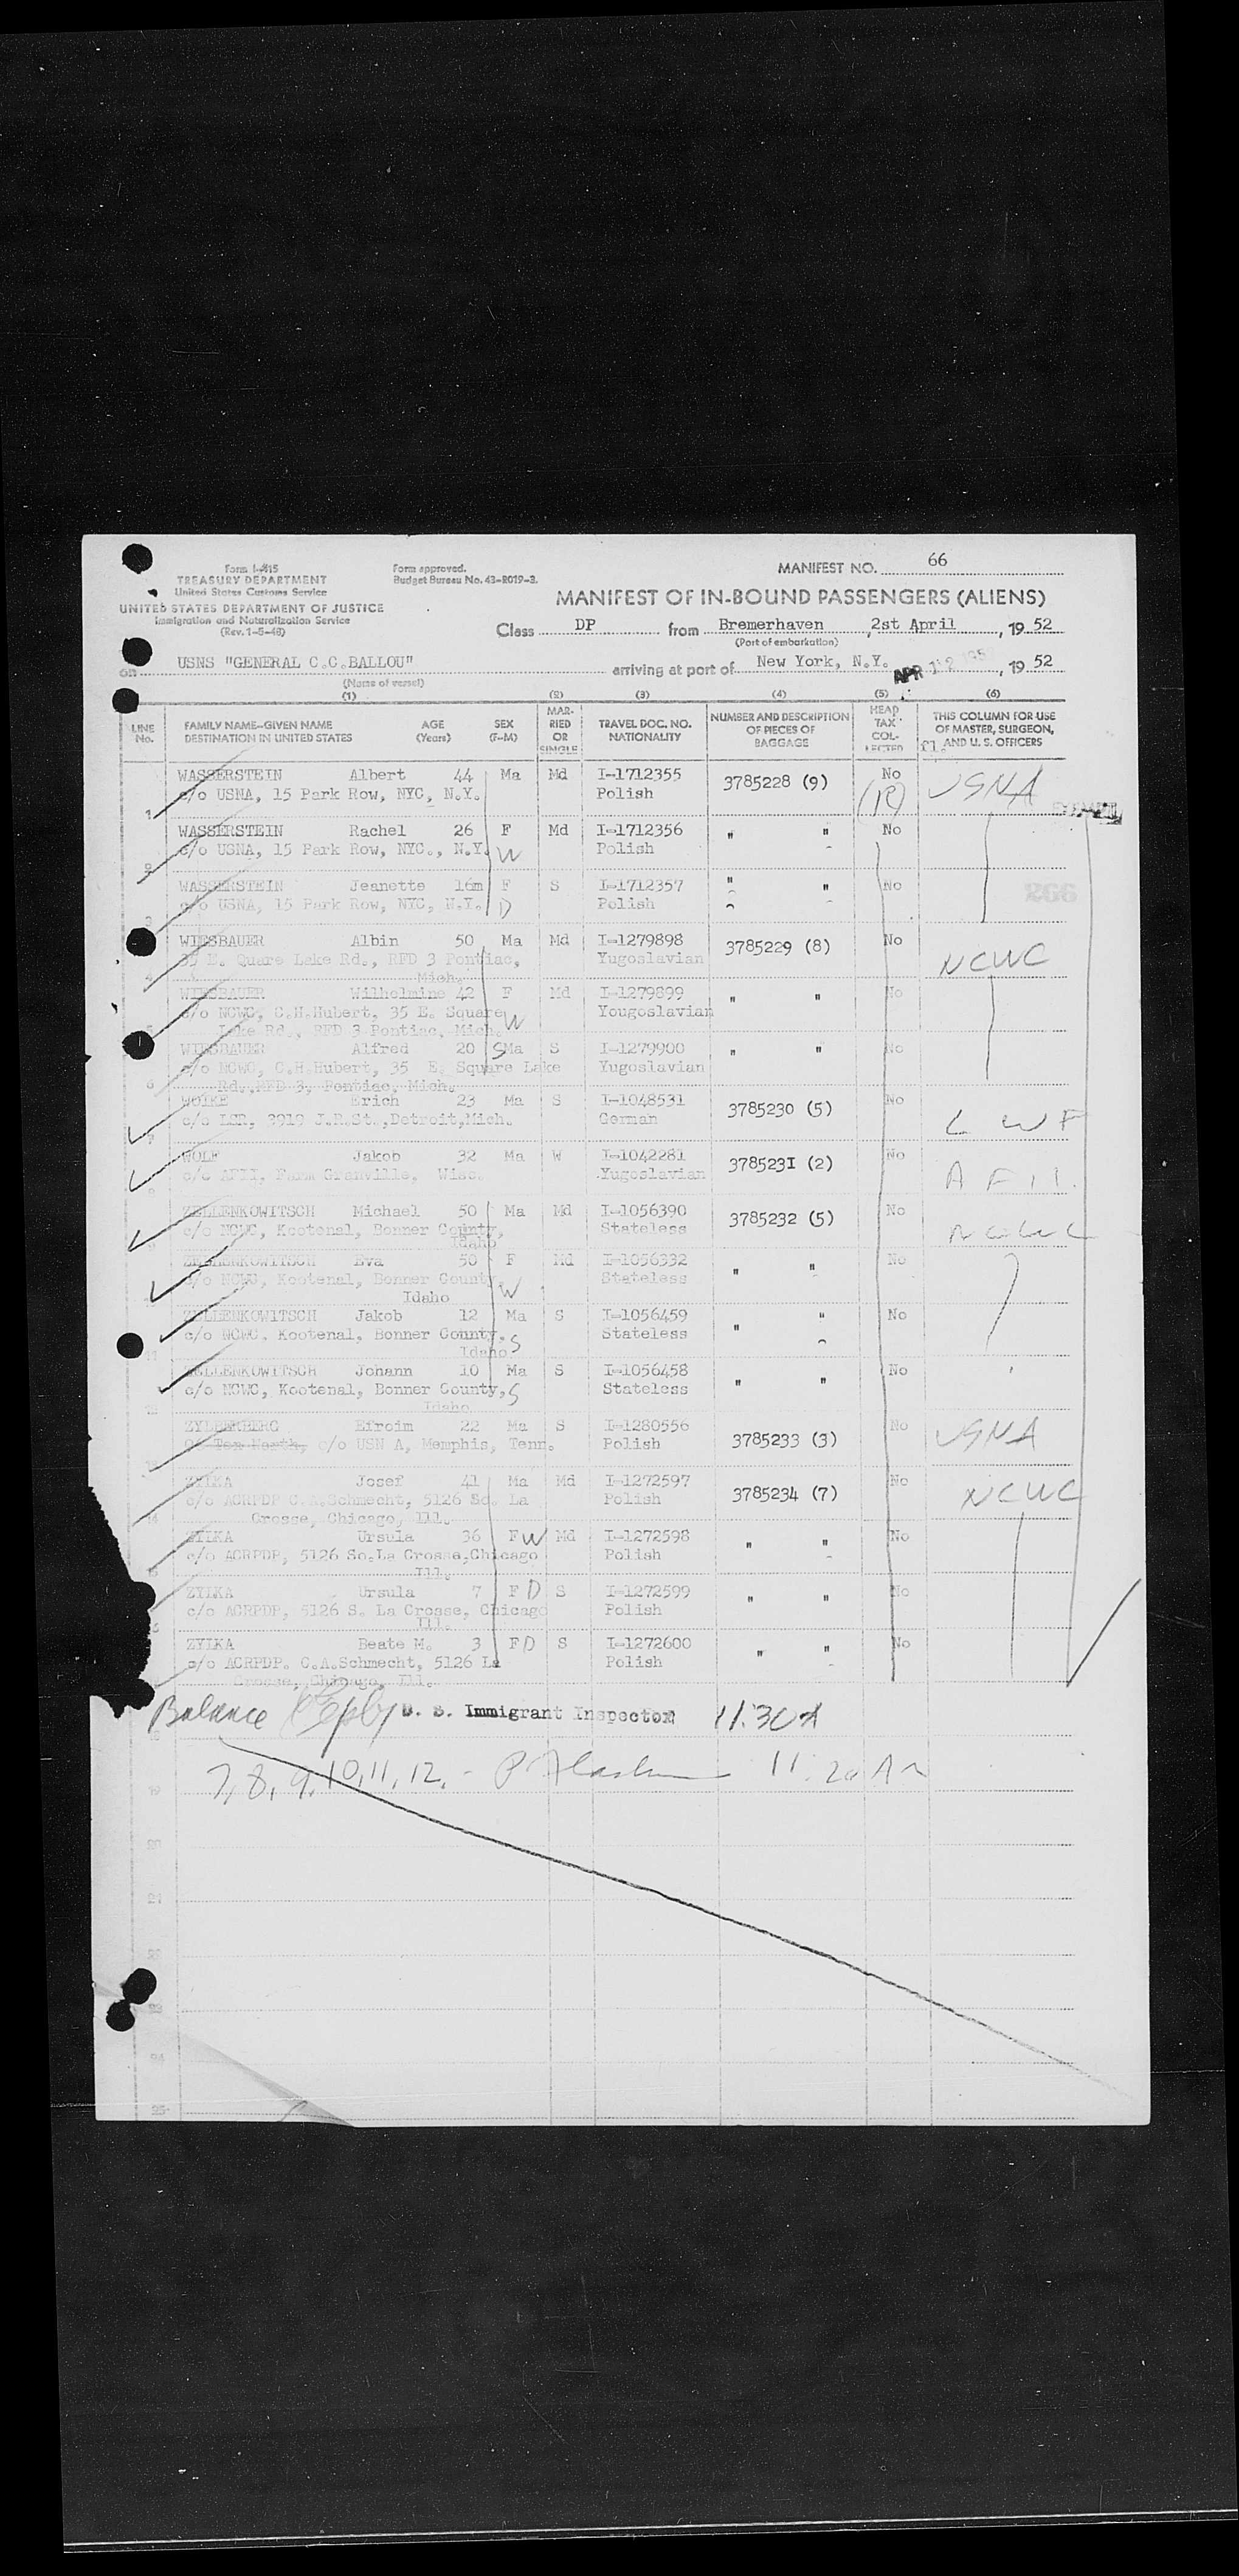 Form I-415
TREASURY DEPARTMENT
United States Customs Service
UNITED STATES DEPARTMENT OF JUSTICE
Immigration and Naturalization Service
(Rev. 1-5-48)
Form approved.
Budget Bureau No. 43-R019-3.
MANIFEST NO. 66
MANIFEST OF IN-BOUND PASSENGERS (ALIENS)
Class DP from Bremerhaven, 2st April, 1952
(Port of embarkation)
on USNS "GENERAL C.C.BALLOU" arriving at port of New York, N.Y. APR 12, 1952
(Name of vessel)
(1) (2) (3) (4) (5) (6)
LINE No. FAMILY NAME-GIVEN NAME DESTINATION IN UNITED STATES AGE (Years) SEX (F-M) MARRIED OR SINGLE TRAVEL DOC. NO. NATIONALITY NUMBER AND DESCRIPTION OF PIECES OF BAGGAGE HEAD TAX COLLECTED THIS COLUMN FOR USE OF MASTER, SURGEON, AND U. S. OFFICERS
WASSERSTEIN Albert 44 Ma Md I-1712355 3785228 (9) No USNA
1 c/o USNA, 15 Park Row, NYC, N.Y. Polish
WASSERSTEIN Rachel 26 F Md I-1712356 " " No
2 c/o USNA, 15 Park Row, NYC., N.Y. W Polish
WASSERSTEIN Jeanette 16m F S I-1712357 " " No
3 c/o USNA, 15 Park Row, NYC, N.Y. D Polish
WIESBAUER Albin 50 Ma Md I-1279898 3785229 (8) No NCWC
4 35 E. Quare Lake Rd., RFD 3 Pontiac, Yugoslavian
Mich.
WIESBAUER Wilhelmine 42 F Md I-1279899 " " No
5 c/o NCWC, C.H.Hubert, 35 E. Square W Yougoslavian
Lake Rd., RFD 3 Pontiac, Mich.
WIESBAUER Alfred 20 S Ma S I-1279900 " " No
6 c/o NCWC, C.H.Hubert, 35 E. Square Lake Yugoslavian
Rd. RFD 3, Pontiac, Mich.
WOIKE Erich 23 Ma S I-1048531 3785230 (5) No LWF
7 c/o LSR, 3919 J.R.St.,Detroit,Mich. German
WOLF Jakob 32 Ma W I-1042281 3785231 (2) No AFII.
8 c/o AFII, Farm Granville, Wisc. Yugoslavian
ZELLENKOWITSCH Michael 50 Ma Md I-1056390 3785232 (5) No NCWC
c/o NCWC, Kootenal, Bonner County, Stateless
Idaho
ZELLENKOWITSCH Eva 50 F Md I-1056332 " " No
c/o NCWC, Kootenal, Bonner County, W Stateless
Idaho
ZELLENKOWITSCH Jakob 12 Ma S I-1056459 " " No
11 c/o NCWC. Kootenal, Bonner County, S Stateless
Idaho
ZELLENKOWITSCH Johann 10 Ma S I-1056458 " " No
12 c/o NCWC, Kootenal, Bonner County, S Stateless
Idaho
ZYLBERBERG Efroim 22 Ma S I-1280556 3785233 (3) No USNA
c/o USN A, Memphis, Tenn. Polish
ZYLKA Josef 41 Ma Md I-1272597 3785234 (7) No NCWC
14 c/o ACRPDP C.A.Schmecht, 5126 So. La Polish
Crosse, Chicago, Ill.
ZYLKA Ursula 36 F W Md I-1272598 " " No
c/o ACRPDP, 5126 So.La Crosse,Chicago Polish
Ill.
ZYLKA Ursula 7 F D S I-1272599 " " No
c/o ACRPDP, 5126 S. La Crosse, Chicago Polish
Ill.
ZYLKA Beate M. 3 F D S I-1272600 " " No
c/o ACRPDP. C.A.Schmecht, 5126 La Polish
Crosse, Chicago, Ill.
Balance U. S. Immigrant Inspector 11:30A
7, 8, 9, 10, 11, 12. - 11:20 AM
19
20
21
22
23
24
25